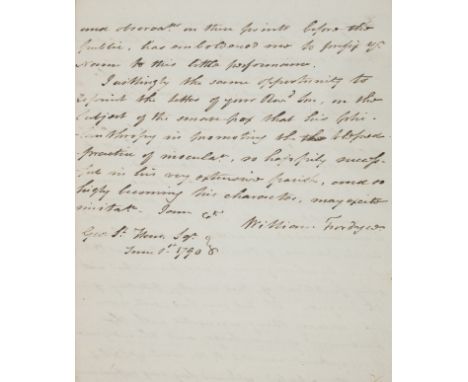 and observatns on these points before the
Public, has emboldened me to prefix yr
Name to this little performance.
I willingly the same opportunity to
reprint the letter of your Revd Son, on the
Subject of the small pox that his phi-
lanthropy in promoting the the blessed
practice of inoculatn, so happily success-
ful in his very extensive parish, and so
highly becoming his character, may excite
imitatn. I am &c
William Fordyce
Geo St Esqr
June 1st 1790